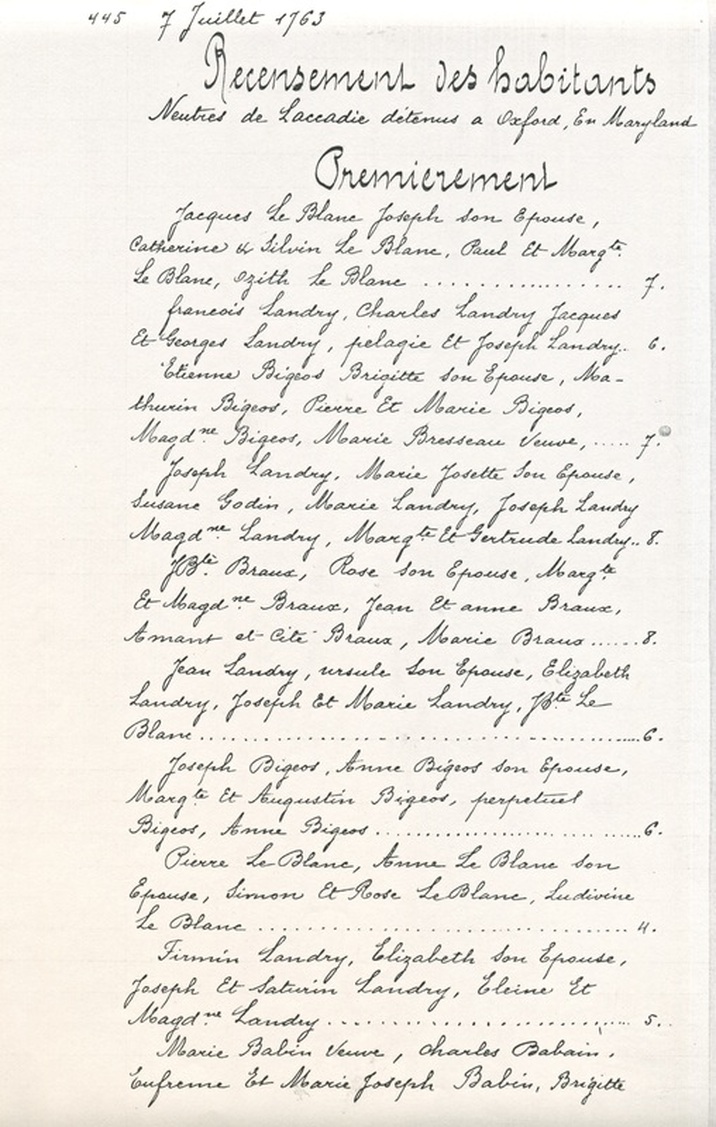 445 7 Juillet 1763
Recensement des habitants
Neutres de Laccadie détenus a Oxford, En Maryland
Premierement
Jacques Le Blanc Joseph son Epouse,
Catherine & Silvin Le Blanc, Paul Et Margte
Le Blanc, Ozith Le Blanc .................. 7.
francois Landry, Charles Landry Jacques
Et Georges Landry, pelagie Et Joseph Landry.. 6.
Etienne Bigeos Brigitte son Epouse, Ma-
thurin Bigeos, Pierre Et Marie Bigeos,
Magdne Bigeos, Marie Bresseau Veuve, ..... 7.
Joseph Landry, Marie Josette Son Epouse,
Susane Godin, Marie Landry, Joseph Landry
Magdne Landry, Margte Et Gertrude Landry.. 8.
JBte Braux, Rose son Epouse, Margte
Et Magdne Braux, Jean Et anne Braux,
Amant et Cité Braux, Marie Braux ...... 8.
Jean Landry, ursule Son Epouse, Elizabeth
Landry, Joseph Et Marie Landry, JBte Le
Blanc ........................................ 6.
Joseph Bigeos, Anne Bigeos son Epouse,
Margte Et Augustin Bigeos, perpetuel
Bigeos, Anne Bigeos .......................... 6.
Pierre Le Blanc, Anne Le Blanc son
Epouse, Simon Et Rose Le Blanc, Ludivine
Le Blanc .................................... 4.
Firmin Landry, Elizabeth Son Epouse,
Joseph Et Saturin Landry, Eleine Et
Magdne Landry ............................. 5.
Marie Babin Veuve, Charles Babain,
Eufreme Et Marie Joseph Babin, Brigitte